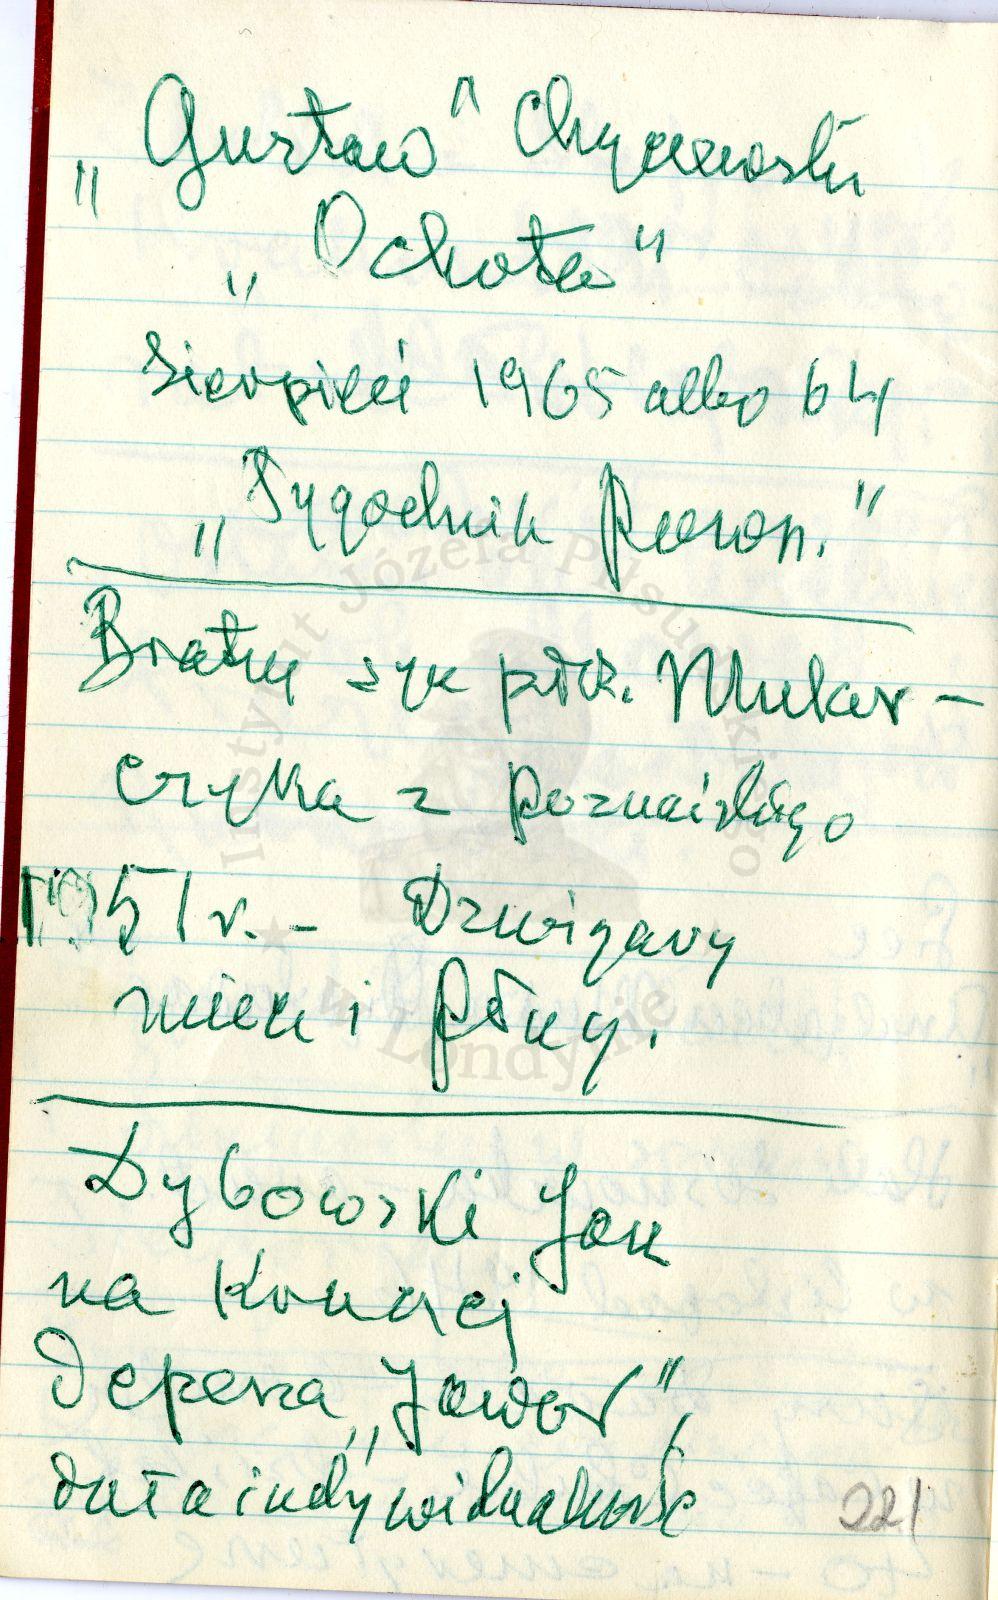 „Gustaw" Chyczewski
„Ochota"
Sierpień 1965 albo 64
„Tygodnik Powsz."
Bratny syn płk. Mular-
czyka z Poznańskiego
1951 r. – Dzwigary
mieli i Pługy.
Dybowski Jan
na Konacj
Depesza „Jawor",
duła indywidualność
221
Instytut Józefa Piłsudskiego
w Londynie